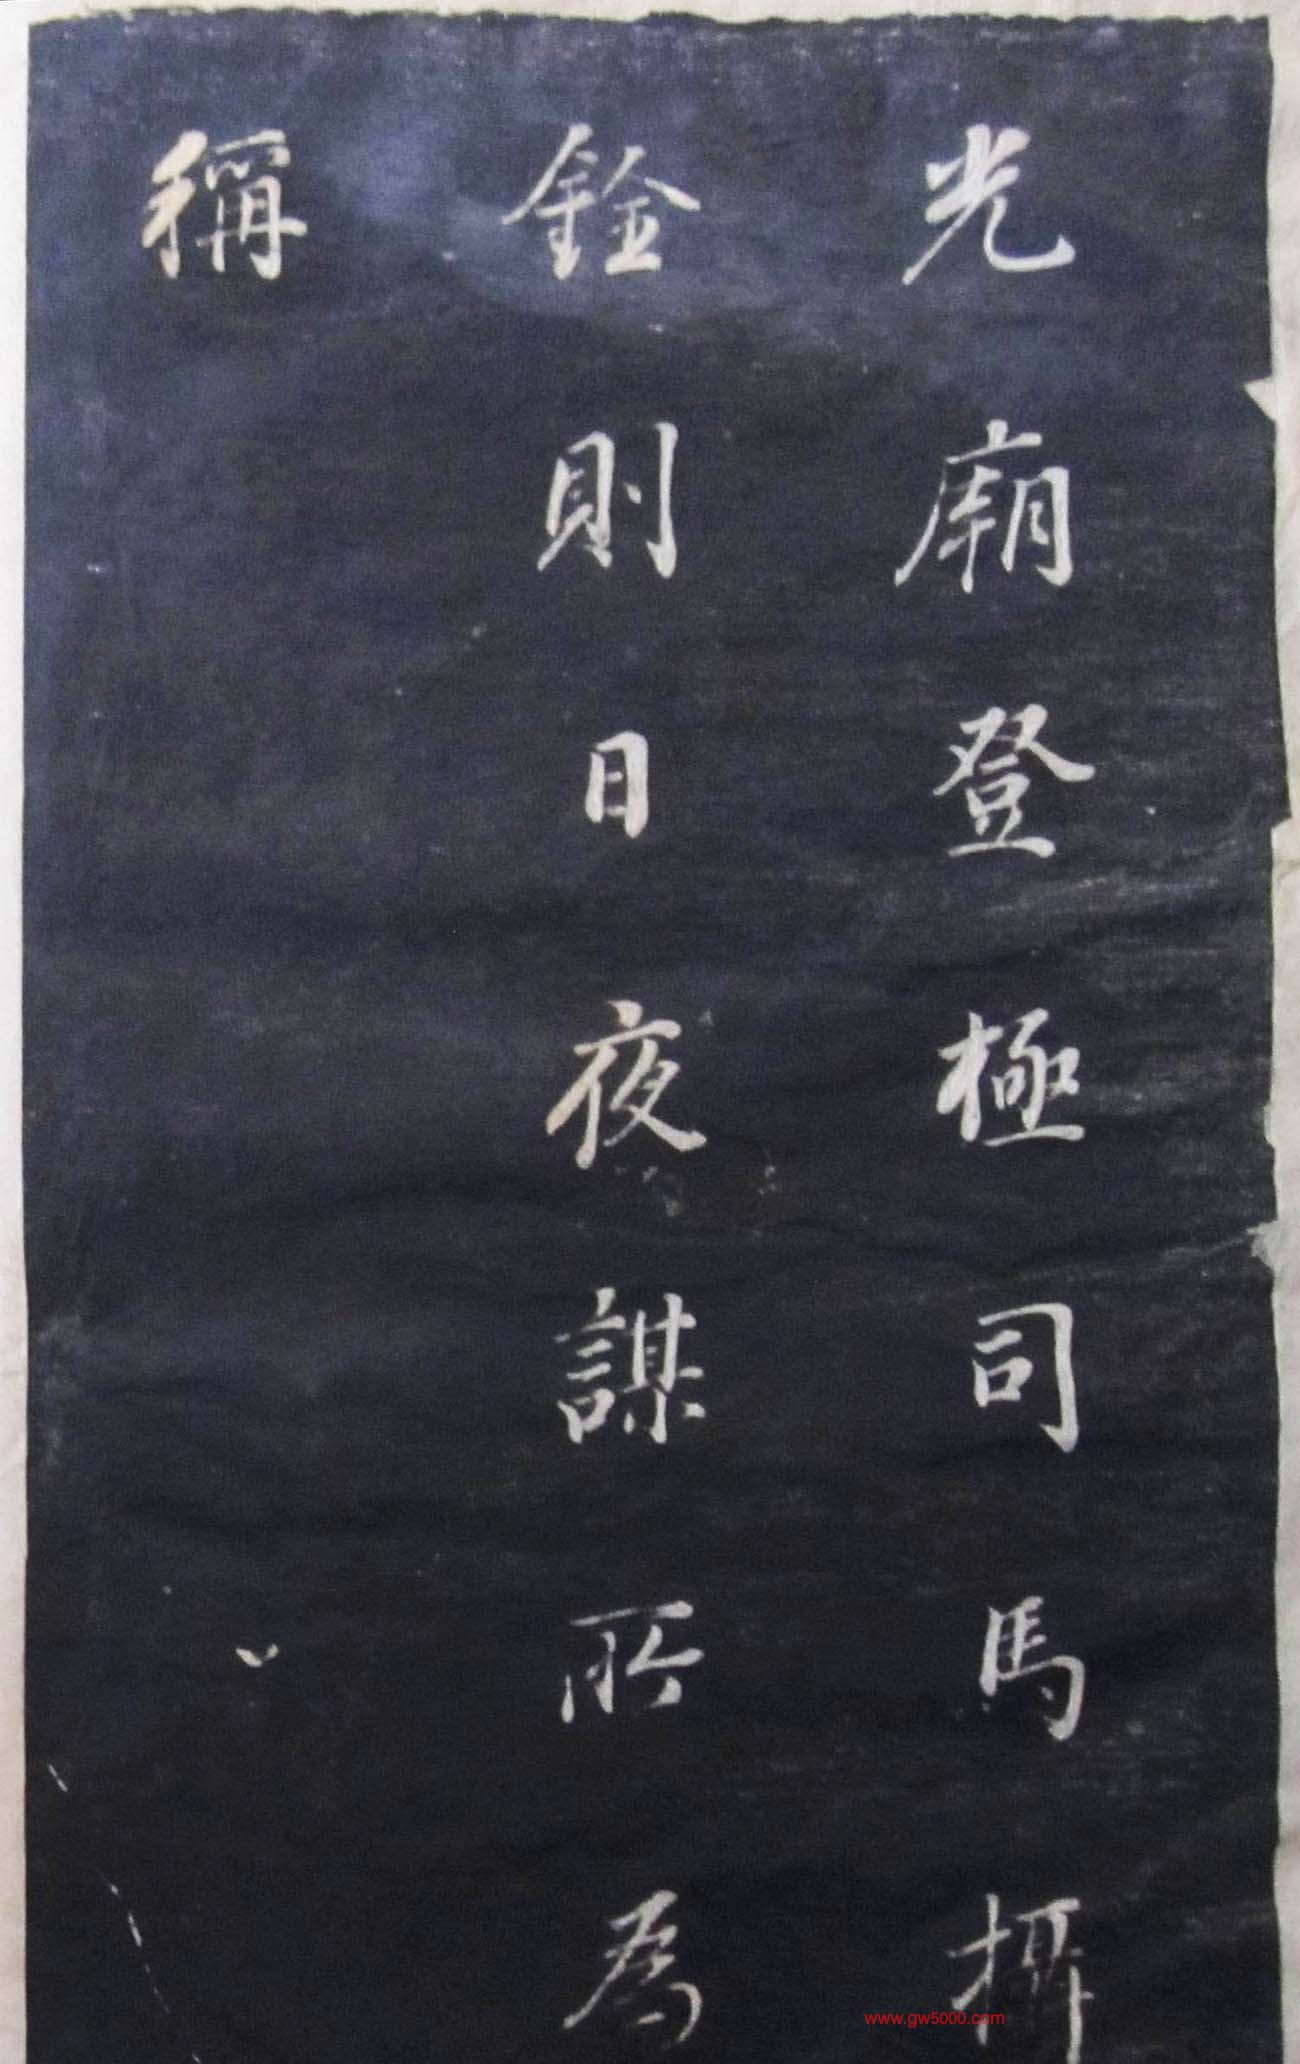 光廟登極司馬攝
銓則日夜謀所為
稱
www.gw5000.com